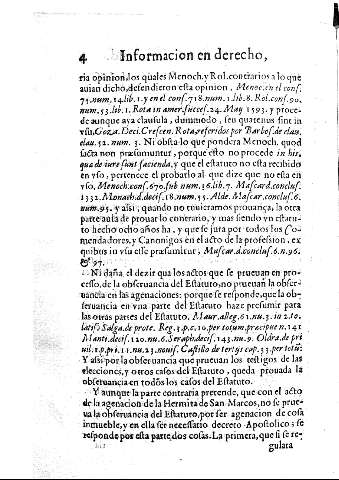 4 Informacion en derecho,
ria opinion, los quales Menoch. y Rol. contrarios a lo que
auian dicho, defendieron esta opinion, Menoc. en el cons.
75. num. 14. lib. 1. y en el cons. 718. num. 1. lib. 8. Rol. cons. 90.
num. 53. lib. 1. Rota in amer. succes. 24. May 1593. y proce-
de aunque aya clausula, dummodo, seu quatenus sint in
vsu, Goza. Deci. Crescen. Rota, referidos por Barbos. de clau.
clau. 52. num. 3. Ni obsta lo que pondera Menoch. quod
facta non præsumuntur, porque esto no procede in his,
quæ de iure sunt facienda, y que el estatuto no esta recibido
en vso, pertenece el probarlo al que dize que no esta en
vso, Menoch. cons. 670. sub num. 36. lib. 7. Mascard. conclus.
1332. Monach. d. decis. 18. num. 55. Alde. Mascar. conclus. 6.
num. 95. y assi, quando no tuuieramos prouança, la otra
parte auia de prouar lo contrario, y mas siendo vn estatu-
to hecho ocho años ha, y que se jura por todos los Co-
mendadores, y Canonigos en el acto de la profession, ex
quibus in vsu esse præsumitur, Mascar. d. conclus. 6. n. 96.
& 97.
Ni daña el dezir que los actos que se prueuan en pro-
cesso, de la obseruancia del Estatuto, no prueuan la obser-
uancia en las agenaciones: porque se responde, que la ob-
seruancia en vna parte del Estatuto haze presumir para
las otras partes del Estatuto. Maur. alleg. 61. nu. 3. in 2. to.
latiss. Salga. de prote. Reg. 3. p. c. 10. per totum, præcipue n. 141
Mant. decis. 120. nu. 6. Seraph. decis. 143. nu. 9. Oldra. de pri
uil. 19. pri. 11. nu. 23. nouis. Castillo de tertys cap. 33. per totũ:
Y assi por la obseruancia que prueuan los testigos de las
elecciones, y otros casos del Estatuto, queda prouada la
obseruancia en todos los casos del Estatuto.
Y aunque la parte contraria pretende, que con el acto
de la agenacion de la Hermita de San Marcos, no se prue-
ua la obseruancia del Estatuto, por ser agenacion de cosa
inmueble, y en ella ser necessario decreto Apostolico; se
responde por esta parte dos cosas. La primera, que si se re-
gulara